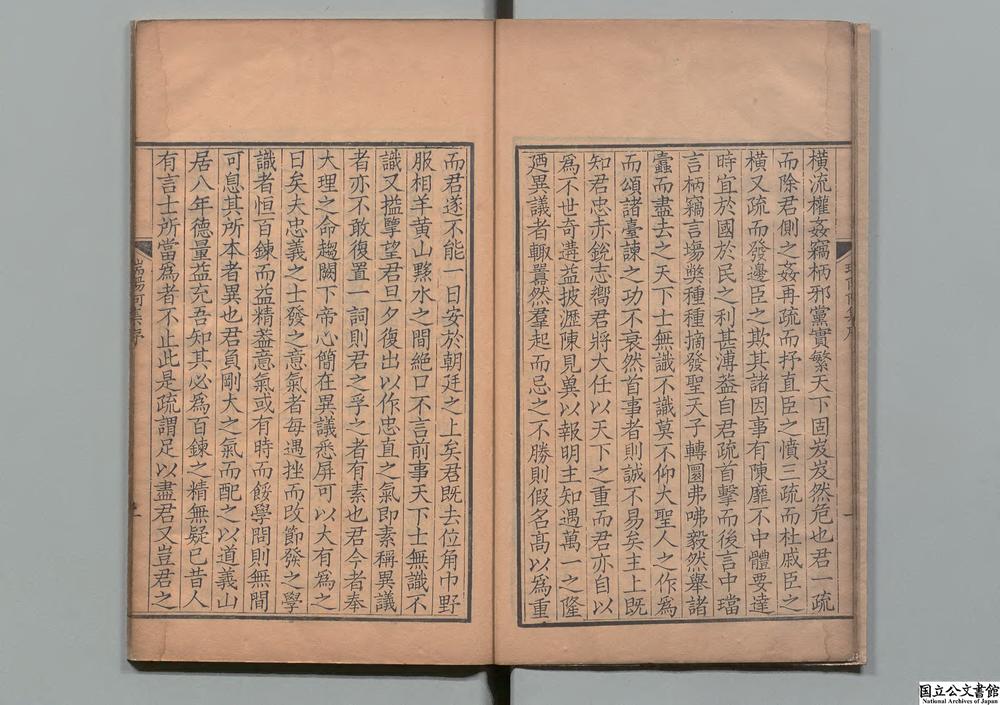 橫流權姦竊柄邪黨實繁天下固岌岌然危也君一疏
而除君側之姦再疏而抒直臣之憤三疏而杜戚臣之
橫又疏而發邊臣之欺其諸因事有陳靡不中體要達
時宜於國於民之利甚溥葢自君疏首擊而後言中璫
言柄竊言塲獘種種摘發聖天子轉圜弗咈毅然舉諸
蠹而盡去之天下士無識不識莫不仰大聖人之作爲
而頌諸臺諫之功不衰然首事者則誠不易矣主上既
知君忠赤銳志嚮君將大任以天下之重而君亦自以
爲不世奇遘益披瀝陳見兾以報明主知遇萬一之隆
廼異議者輙囂然羣起而忌之不勝則假名髙以爲重
而君遂不能一日安於朝廷之上矣君既去位角巾野
服相羊黄山黟水之間絶口不言前事天下士無識不
識又搤擥望君旦夕復出以作忠直之氣即素稱異議
者亦不敢復置一詞則君之孚之者有素也君今者奉
大理之命趨闕下帝心簡在異議悉屏可以大有爲之
日矣夫忠義之士發之意氣者每遇挫而改節發之學
識者恒百鍊而益精葢意氣或有時而餒學問則無間
可息其所本者異也君負剛大之氣而配之以道義山
居八年德量益充吾知其必爲百鍊之精無疑已昔人
有言士所當爲者不止此是疏謂足以盡君又豈君之
国立公文書館
National Archives of Japan